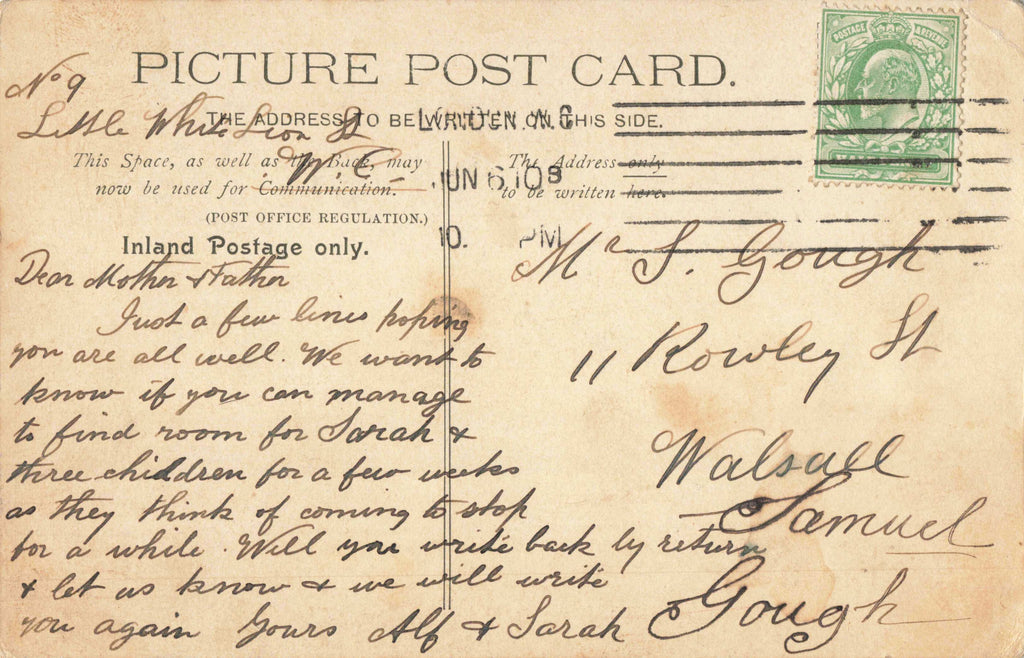 PICTURE POST CARD.
POSTAGE & REVENUE
No 9
Little White Lion St
W.C.
THE ADDRESS TO BE WRITTEN ON THIS SIDE.
LONDON. W.C
JUN 6 10 8
10. PM
This Space, as well as the Back, may
now be used for Communication.
(POST OFFICE REGULATION.)
Inland Postage only.
The Address only
to be written here.
Dear Mother & Father
Just a few lines hoping
you are all well. We want to
know if you can manage
to find room for Sarah &
three children for a few weeks
as they think of coming to stop
for a while. Will you write back by return
& let us know & we will write
you again Yours Alf & Sarah
Mr S. Gough
11 Rowley St
Walsall
Samuel
Gough